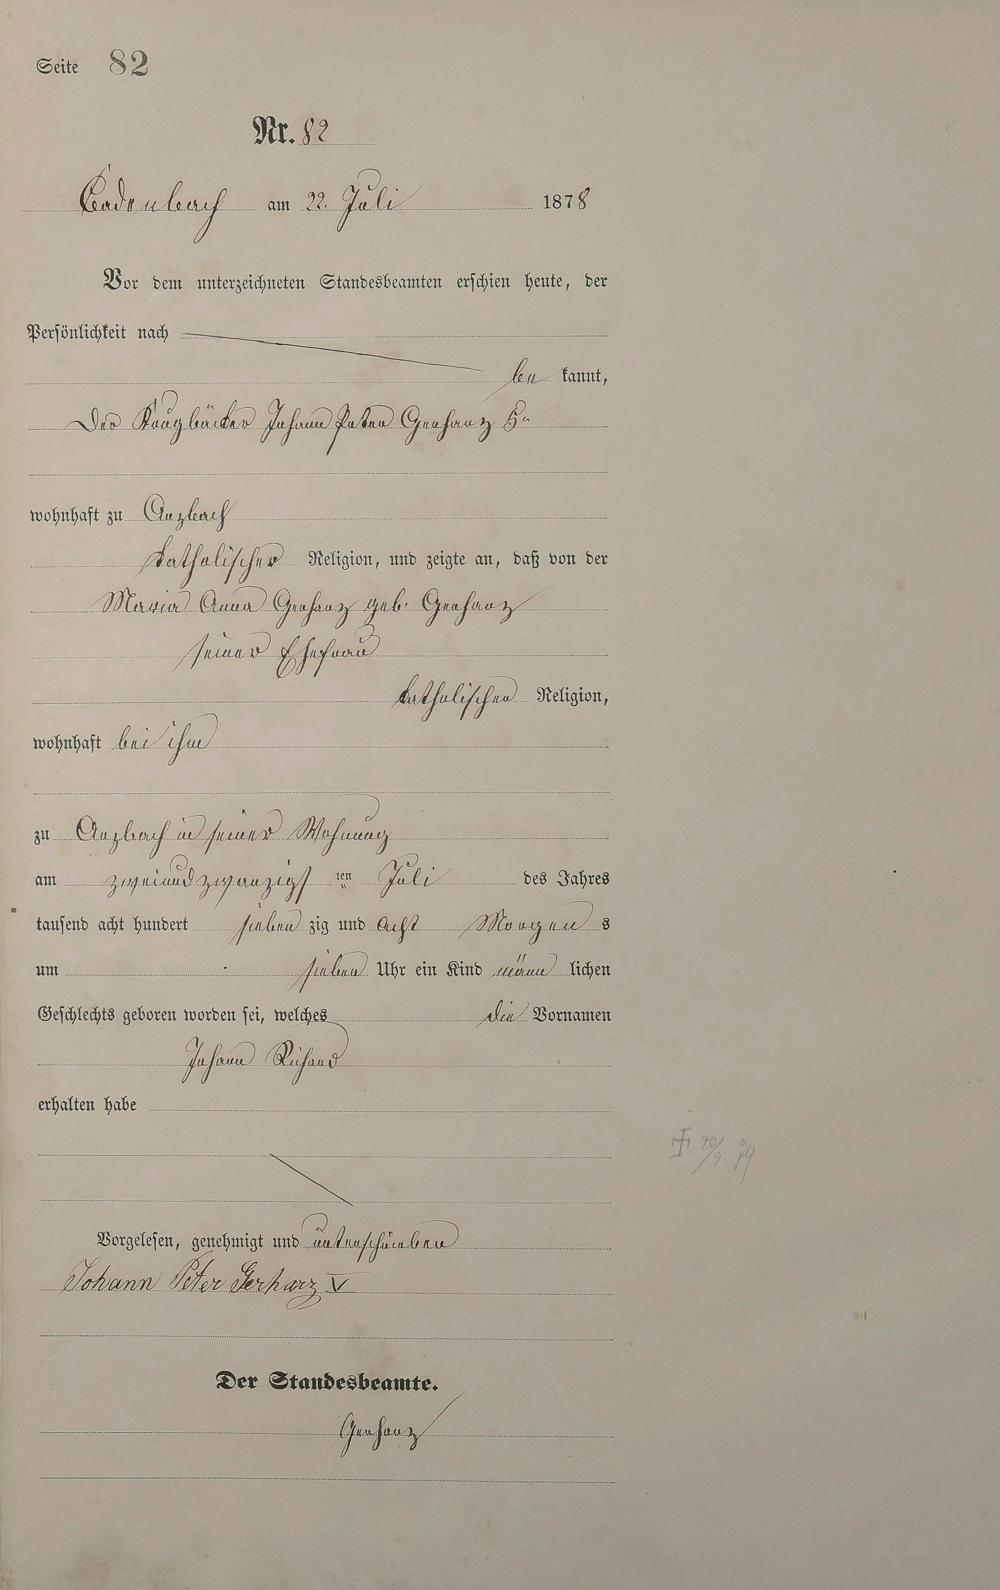 Seite 82
Nr. 82
Badenbach am 22. Juli 1878
Vor dem unterzeichneten Standesbeamten erschien heute, der
Persönlichkeit nach
be kannt,
der Krugbäcker Johann Peter Gerharz 5r
wohnhaft zu Arzbach
katholischer Religion, und zeigte an, daß von der
Maria Anna Gerharz geb. Gerharz
seiner Ehefrau
katholischer Religion,
wohnhaft bei ihm
zu Arzbach in seiner Wohnung
am zweiundzwanzigs ten Juli des Jahres
tausend acht hundert sieben zig und acht Morgen s
um sieben Uhr ein Kind männ lichen
Geschlechts geboren worden sei, welches die Vornamen
Johann Richard
erhalten habe
Vorgelesen, genehmigt und unterschrieben
Johann Peter Gerharz V
Der Standesbeamte.
Gerharz